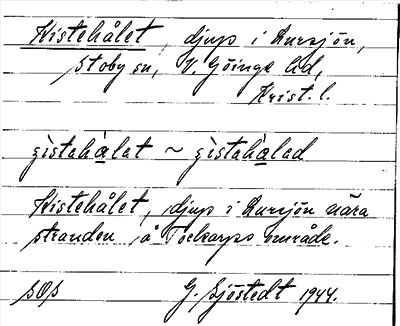 Kistehålet, djup i Lursjön,
Stoby sn, V. Göinge hd,
Krist. l.
ʒìstahàlat ~ ʒìstahàlad
Kistehålet, djup i Lursjön nära
stranden å Tockarps område.
SOS G. Sjöstedt 1944.